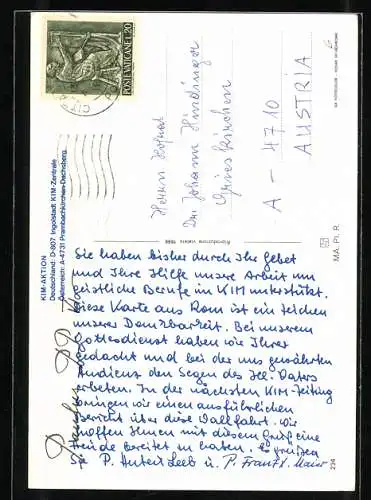 POSTE VATICANE L.20
KIM-AKTION
Deutschland: D-807 Ingolstadt KIM-Zentrale
Österreich: A-4731 Prambachkirchen-Dachsberg
Herrn Hofrat
Dr. Johann Hindinger
Grieskirchen
A - 4710
AUSTRIA
Sie haben bisher durch Ihr Gebet
und Ihre Hilfe unsere Arbeit um
geistliche Berufe im KIM unterstützt.
Diese Karte aus Rom ist ein Zeichen
unserer Dankbarkeit. Bei unserem
Gottesdienst haben wir Ihrer
gedacht und bei der uns gewährten
Audienz den Segen des Hl. Vaters
erbeten. In der nächsten KIM-Zeitung
bringen wir einen ausführlichen
Bericht über diese Wallfahrt. Wir
hoffen Ihnen mit diesem Gruß eine
Freude bereitet zu haben. Es grüßen
Sie P. Hubert Leeb u. P. Franz S. Maier
Riproduzione vietata
MA. Pi. R.
234